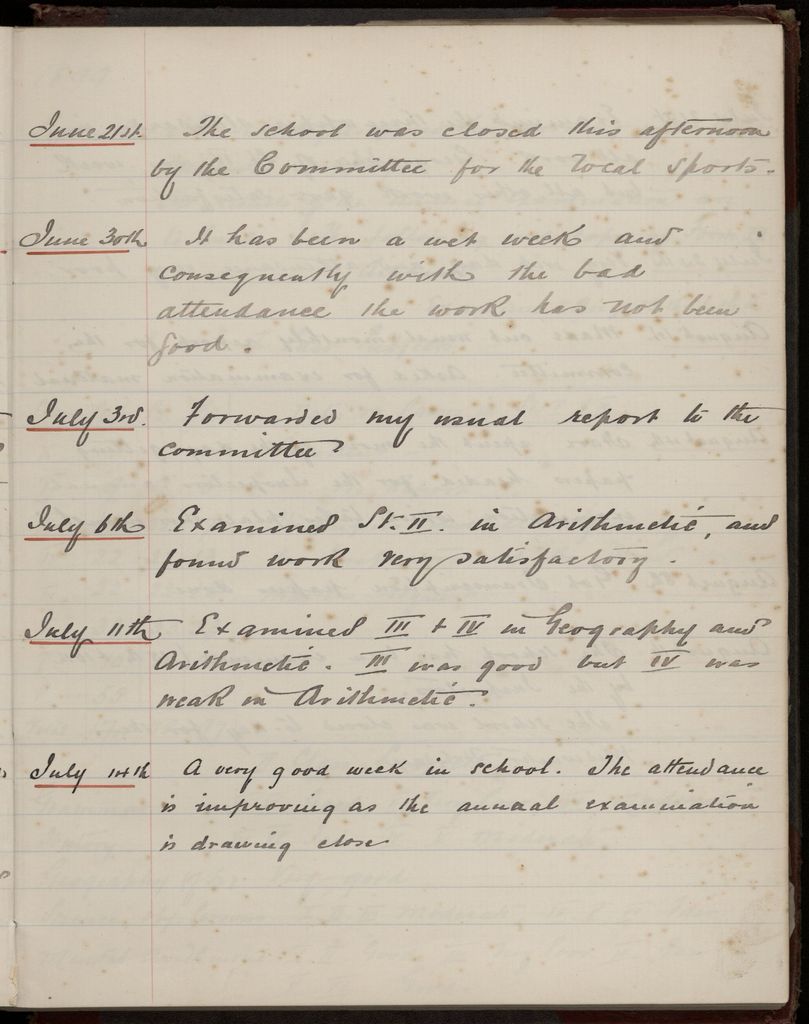 June 21st. The school was closed this afternoon
by the Committee for the local sports.
June 30th It has been a wet week and
consequently with the bad
attendance the work has not been
good.
July 3rd. Forwarded my usual report to the
committee
July 6th Examined St. II. in Arithmetic, and
found work very satisfactory.
July 11th Examined III & IV in Geography and
Arithmetic. III was good but IV was
weak in Arithmetic.
July 14th A very good week in school. The attendance
is improving as the annual examination
is drawing close